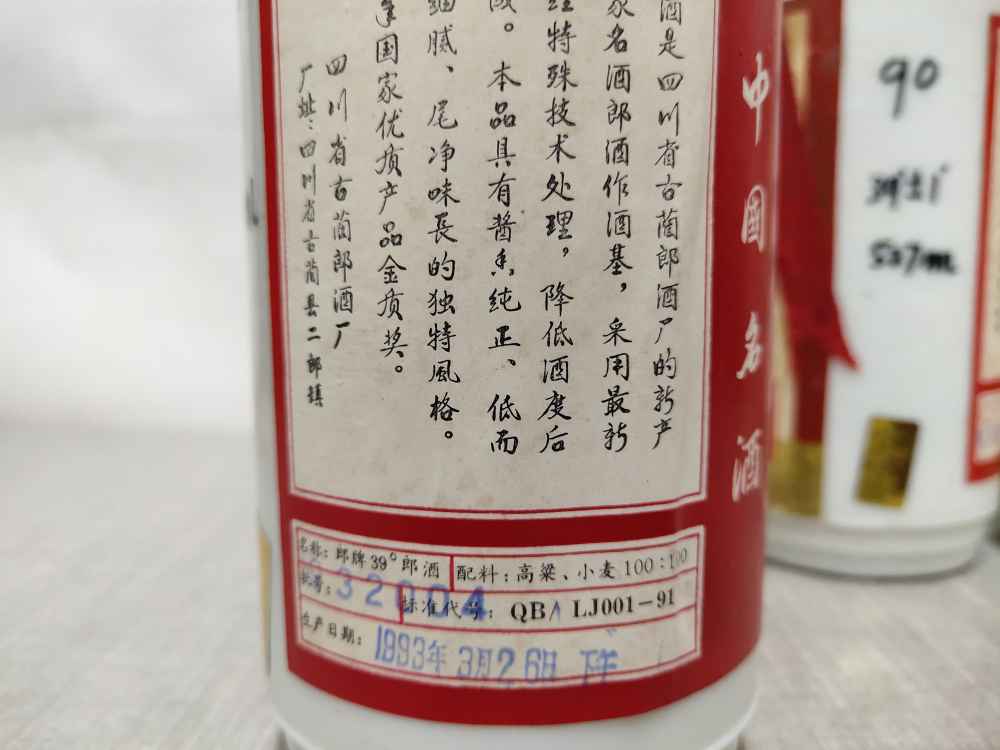 酒是四川省古蔺郎酒厂的新产
家名酒郎酒作酒基，采用最新
特殊技术处理，降低酒度后
成。本品具有酱香纯正、低而
细腻、尾净味長的独特風格。
国家优质产品金质奖。
四川省古蔺郎酒厂
厂址：四川省古蔺县二郎镇
中國名酒
名称：郎牌39°郎酒
配料：高粱、小麦100：100
批号：32004
标准代号：QBA LJ001-91
生产日期：1993年3月26日
90
39±1
507ml